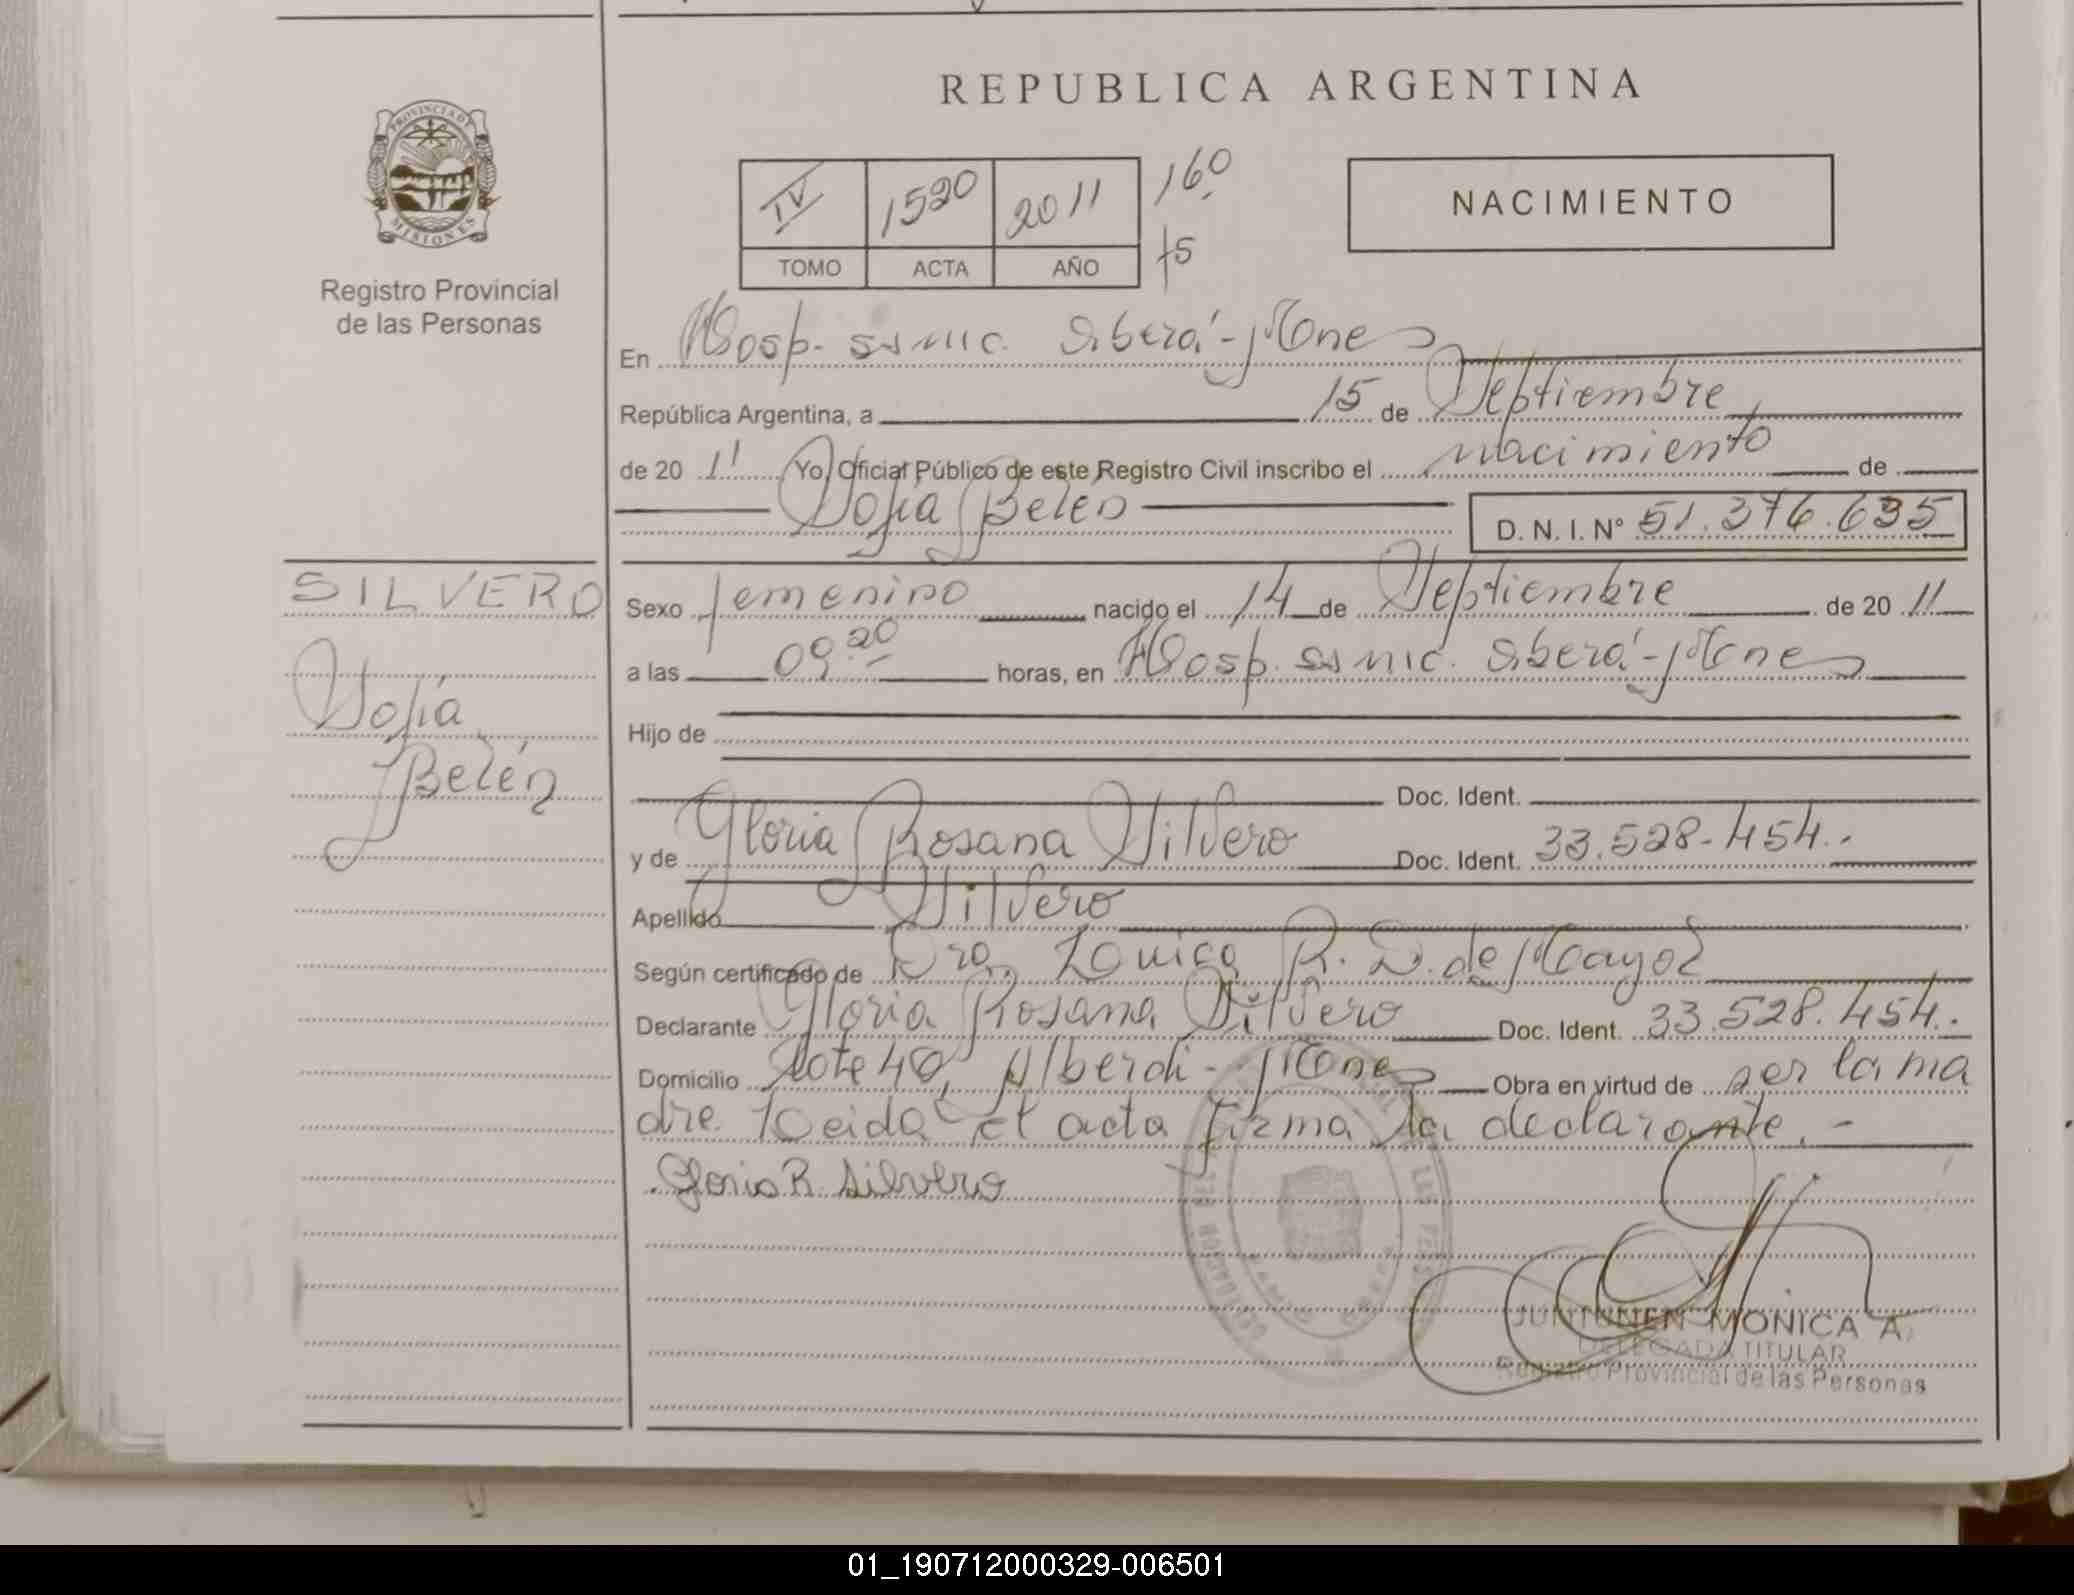 REPUBLICA ARGENTINA
PROVINCIA DE MISIONES
Registro Provincial
de las Personas
IV 1520 2011 160
TOMO ACTA AÑO 75
NACIMIENTO
En Hosp. SS mic. Oberá - Mones
República Argentina, a 15 de Septiembre
de 20 11 Yo, Oficial Público de este Registro Civil inscribo el nacimiento de
Sofía Belén D. N. I. Nº 51.376.635
SILVERO
Sofía
Belén
Sexo femenino nacido el 14 de Septiembre de 20 11
a las 09 20 horas, en Hosp. SS mic. Oberá - Mones
Hijo de
Doc. Ident.
y de Gloria Rosana Silvero Doc. Ident. 33.528.454.-
Apellido Silvero
Según certificado de Dra. R. D. de Mayol
Declarante Gloria Rosana Silvero Doc. Ident. 33.528.454.-
Domicilio Lote 40, Alberdi - Mones Obra en virtud de ser la ma
dre. Leida el acta firma la declarante.-
Gloria R. Silvero
JUNTUNEN MONICA A.
DELEGADA TITULAR
Registro Provincial de las Personas
01_190712000329-006501